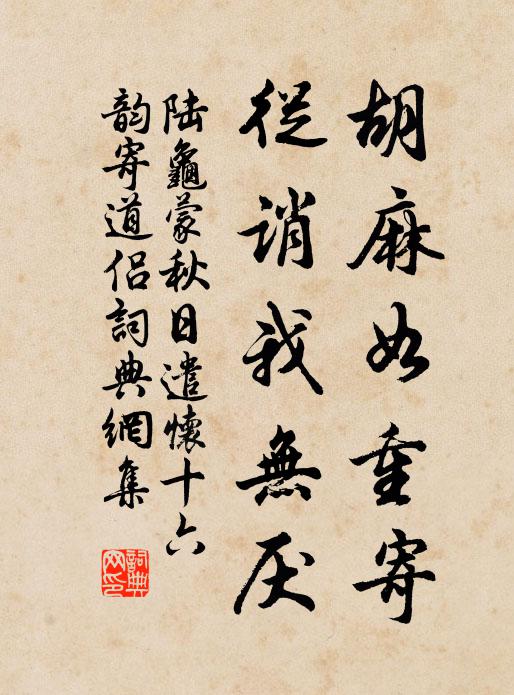 胡麻如重寄
從誚我無厌
陆龜蒙秋日遣懷十六
韵寄道侣詞典網集
詞典网印